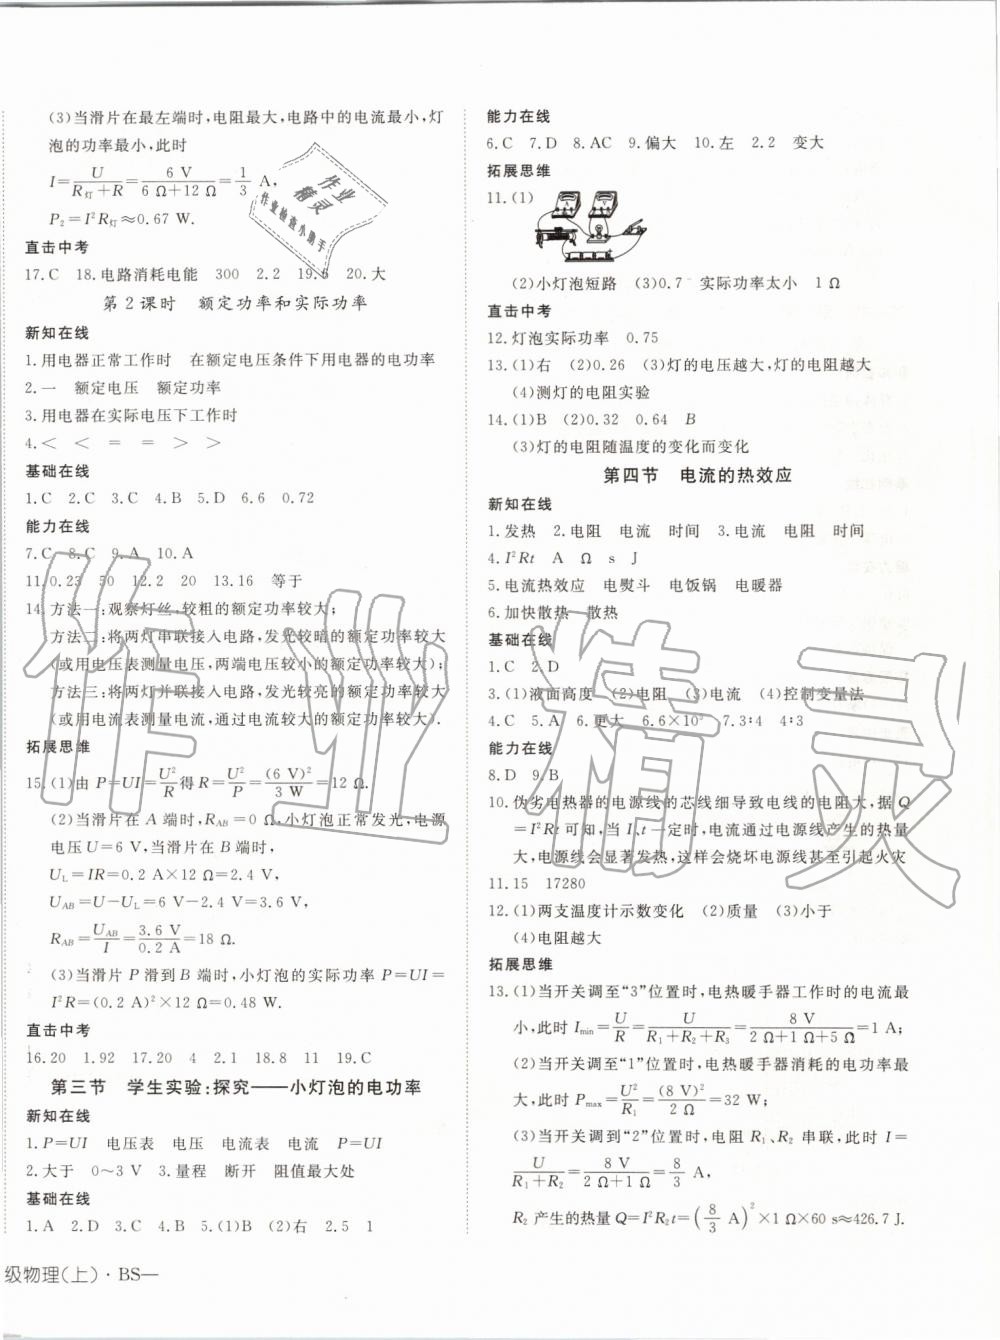 (3)当滑片在最左端时,电阻最大,电路中的电流最小,灯
泡的功率最小,此时
I=U/(R灯+R)=6 V/(6 Ω+12 Ω)=1/3 A,
P₂=I²R灯≈0.67 W.
直击中考
17.C 18.电路消耗电能 300 2.2 19.6 20.大
第2课时 额定功率和实际功率
新知在线
1.用电器正常工作时 在额定电压条件下用电器的电功率
2.一 额定电压 额定功率
3.用电器在实际电压下工作时
4.< < = = > >
基础在线
1.C 2.C 3.C 4.B 5.D 6.6 0.72
能力在线
7.C 8.C 9.A 10.A
11.0.23 50 12.2 20 13.16 等于
14.方法一:观察灯丝,较粗的额定功率较大;
方法二:将两灯串联接入电路,发光较暗的额定功率较大
(或用电压表测量电压,两端电压较小的额定功率较大);
方法三:将两灯并联接入电路,发光较亮的额定功率较大
(或用电流表测量电流,通过电流较大的额定功率较大).
拓展思维
15.(1)由 P=UI=U²/R得 R=U²/P=(6 V)²/3 W=12 Ω.
(2)当滑片在 A 端时,R_AB=0 Ω,小灯泡正常发光,电源
电压 U=6 V,当滑片在 B 端时,
U_L=IR=0.2 A×12 Ω=2.4 V,
U_AB=U−U_L=6 V−2.4 V=3.6 V,
R_AB=U_AB/I=3.6 V/0.2 A=18 Ω.
(3)当滑片 P 滑到 B 端时,小灯泡的实际功率 P=UI=
I²R=(0.2 A)²×12 Ω=0.48 W.
直击中考
16.20 1.92 17.20 4 2.1 18.8 11 19.C
第三节 学生实验:探究——小灯泡的电功率
新知在线
1.P=UI 电压表 电压 电流表 电流 P=UI
2.大于 0~3 V 3.量程 断开 阻值最大处
基础在线
1.A 2.D 3.C 4.B 5.(1)B (2)右 2.5 1
级物理(上)·BS—
能力在线
6.C 7.D 8.AC 9.偏大 10.左 2.2 变大
拓展思维
11.(1)
(2)小灯泡短路 (3)0.7 实际功率太小 1 Ω
直击中考
12.灯泡实际功率 0.75
13.(1)右 (2)0.26 (3)灯的电压越大,灯的电阻越大
(4)测灯的电阻实验
14.(1)B (2)0.32 0.64 B
(3)灯的电阻随温度的变化而变化
第四节 电流的热效应
新知在线
1.发热 2.电阻 电流 时间 3.电流 电阻 时间
4.I²Rt A Ω s J
5.电流热效应 电熨斗 电饭锅 电暖器
6.加快散热 散热
基础在线
1.C 2.D
3.(1)液面高度 (2)电阻 (3)电流 (4)控制变量法
4.C 5.A 6.更大 6.6×10⁵ 7.3∶4 4∶3
能力在线
8.D 9.B
10.伪劣电热器的电源线的芯线细导致电线的电阻大,据 Q
=I²Rt 可知,当 I、t 一定时,电流通过电源线产生的热量
大,电源线会显著发热,这样会烧坏电源线甚至引起火灾
11.15 17280
12.(1)两支温度计示数变化 (2)质量 (3)小于
(4)电阻越大
拓展思维
13.(1)当开关调至“3”位置时,电热暖手器工作时的电流最
小,此时 I_min=U/R=U/(R₁+R₂+R₃)=8 V/(2 Ω+1 Ω+5 Ω)=1 A;
(2)当开关调至“1”位置时,电热暖手器消耗的电功率最
大,此时 P_max=U²/R₁=(8 V)²/2 Ω=32 W;
(3)当开关调到“2”位置时,电阻 R₁、R₂ 串联,此时 I=
U/(R₁+R₂)=8 V/(2 Ω+1 Ω)=8/3 A,
R₂ 产生的热量 Q=I²R₂t=(8/3 A)²×1 Ω×60 s≈426.7 J.
作业
精灵
作业检查小助手
作业精灵